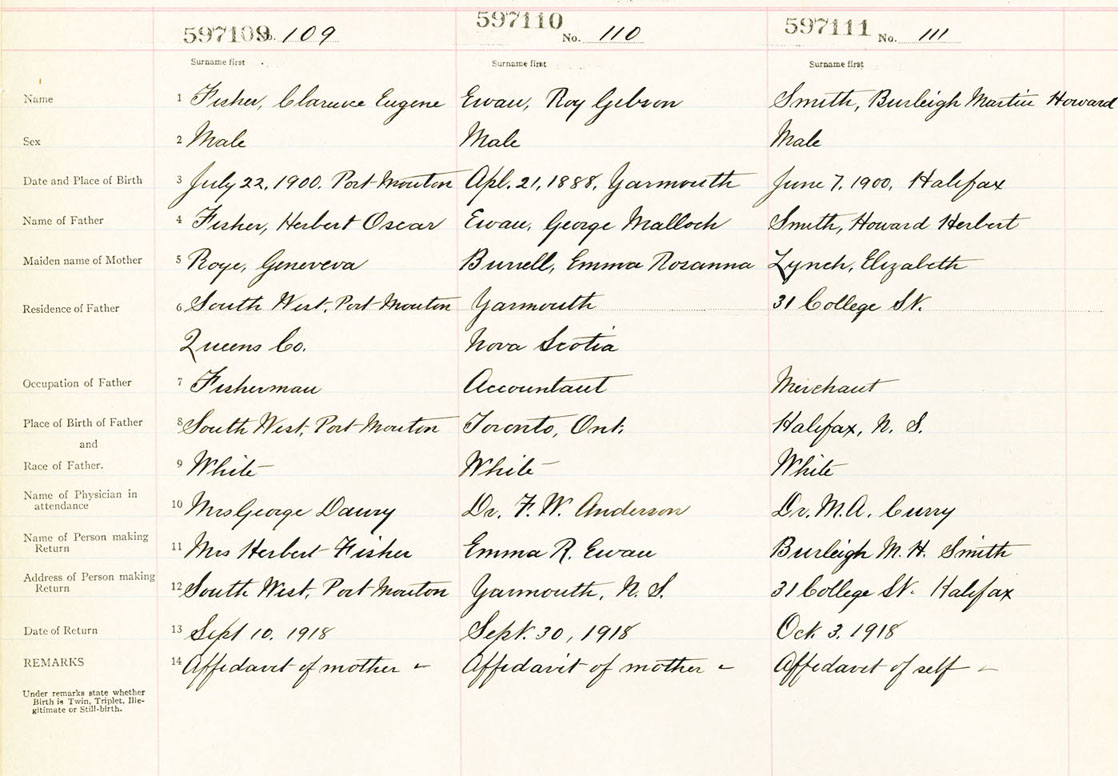 597109 No. 109 597110 No. 110 597111 No. 111
Surname first Surname first Surname first
Name 1 Fisher, Clarence Eugene Ewan, Roy Gibson Smith, Burleigh Martin Howard
Sex 2 Male Male Male
Date and Place of Birth 3 July 22, 1900. Port Mouton Apl. 21, 1888, Yarmouth June 7, 1900, Halifax
Name of Father 4 Fisher, Herbert Oscar Ewan, George Malloch Smith, Howard Herbert
Maiden name of Mother 5 Roye, Geneveva Burrell, Emma Rosanna Lynch, Elizabeth
Residence of Father 6 South West, Port Mouton Yarmouth 31 College St.
Queens Co. Nova Scotia
Occupation of Father 7 Fisherman Accountant Merchant
Place of Birth of Father 8 South West, Port Mouton Toronto, Ont. Halifax, N. S.
and
Race of Father. 9 White White White
Name of Physician in
attendance 10 Mrs George Daury Dr. F. W. Anderson Dr. M.A. Curry
Name of Person making
Return 11 Mrs Herbert Fisher Emma R. Ewan Burleigh M. H. Smith
Address of Person making
Return 12 South West, Port Mouton Yarmouth, N. S. 31 College St. Halifax
Date of Return 13 Sept 10. 1918 Sept. 30, 1918 Oct. 3. 1918
REMARKS 14 Affidavit of mother - Affidavit of mother - Affidavit of self -
Under remarks state whether
Birth is Twin, Triplet, Ille-
gitimate or Still-birth.